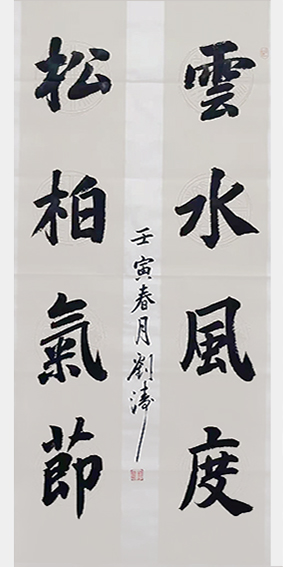 雲水風度
松柏氣節
壬寅春月劉濤